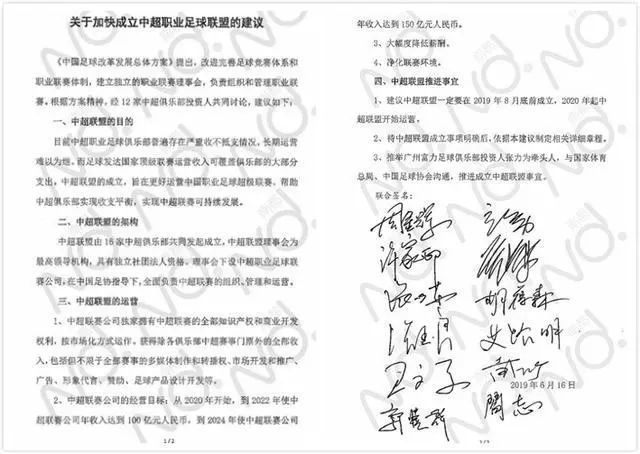 关于加快成立中超职业足球联盟的建议
《中国足球改革发展总体方案》提出，改进完善足球竞赛体系和
职业联赛体制，建立独立的职业联赛理事会，负责组织和管理职业联
赛。根据方案精神，经12家中超俱乐部投资人共同讨论，建议如下：
一、中超联盟的目的
目前中超职业足球俱乐部普遍存在严重收不抵支情况，长期运营
难以为继。而足球发达国家顶级联赛运营收入可覆盖俱乐部的大部分
支出，中超联盟的成立，旨在更好运营中国职业足球超级联赛，帮助
中超俱乐部实现收支平衡，实现中超联赛可持续发展。
二、中超联盟的架构
中超联盟由16家中超俱乐部共同发起成立，中超联盟理事会为
最高领导机构，具有独立社团法人资格。理事会下设中超职业足球联
赛公司，在中国足协指导下，全面负责中超联赛的组织、
管理和运营。
三、中超联盟的运营
1、中超联赛公司独家拥有中超联赛的全部知识产权和商业开发
权利，按市场化方式运作。获得除各俱乐部中超赛事门票外的全部收
入，包括但不限于全部赛事的多媒体制作和转播权、市场开发和推广、
广告、形象代言、赞助、足球产品设计开发等。
2、中超联赛公司的经营目标：从2020年开始，到2022年使中
超联赛公司年收入达到100亿元人民币，到2024年使中超联赛公司
1/2
年收入达到150亿元人民币。
3、大幅度降低薪酬。
4、净化联赛环境。
四、中超联盟推进事宜
1、建议中超联盟一定要在2019年8月底前成立，2020年起中
超联盟开始运营。
2、待中超联盟成立事项明确后，依据本建议制定相关详细章程。
3、推举广州富力足球俱乐部投资人张力为牵头人，与国家体育
总局、中国足球协会沟通，推进成立中超联盟事宜。
联合签名：
许家印
胡葆森
2019年6月16日
1/2
NO.